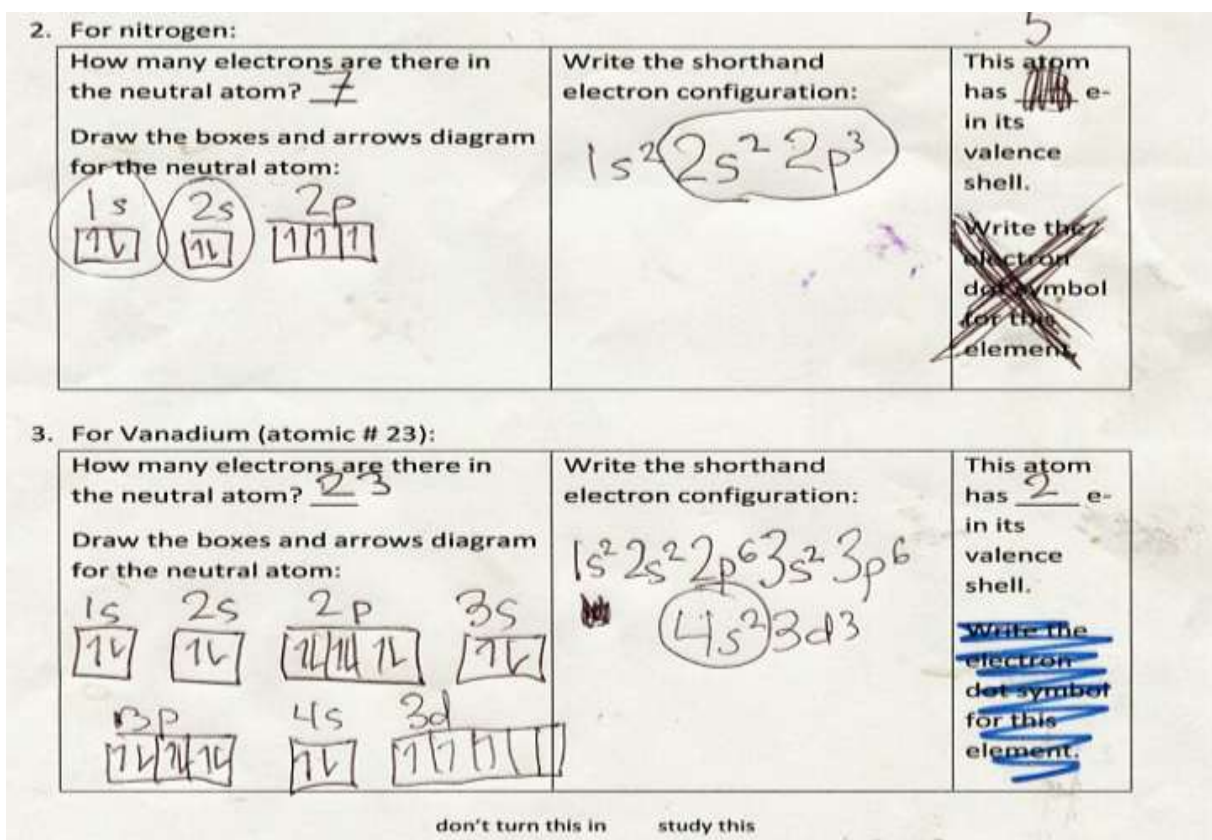 5
2. For nitrogen:
How many electrons are there in
the neutral atom? 7
Draw the boxes and arrows diagram
for the neutral atom:
1s 2s 2p
Write the shorthand
electron configuration:
1s² 2s² 2p³
This atom
has e-
in its
valence
shell.
Write the
electron
dot symbol
for this
element.
3. For Vanadium (atomic # 23):
How many electrons are there in
the neutral atom? 23
Draw the boxes and arrows diagram
for the neutral atom:
1s 2s 2p 3s
3p 4s 3d
Write the shorthand
electron configuration:
1s² 2s² 2p⁶ 3s² 3p⁶
4s² 3d³
This atom
has 2 e-
in its
valence
shell.
Write the
electron
dot symbol
for this
element.
don't turn this in study this